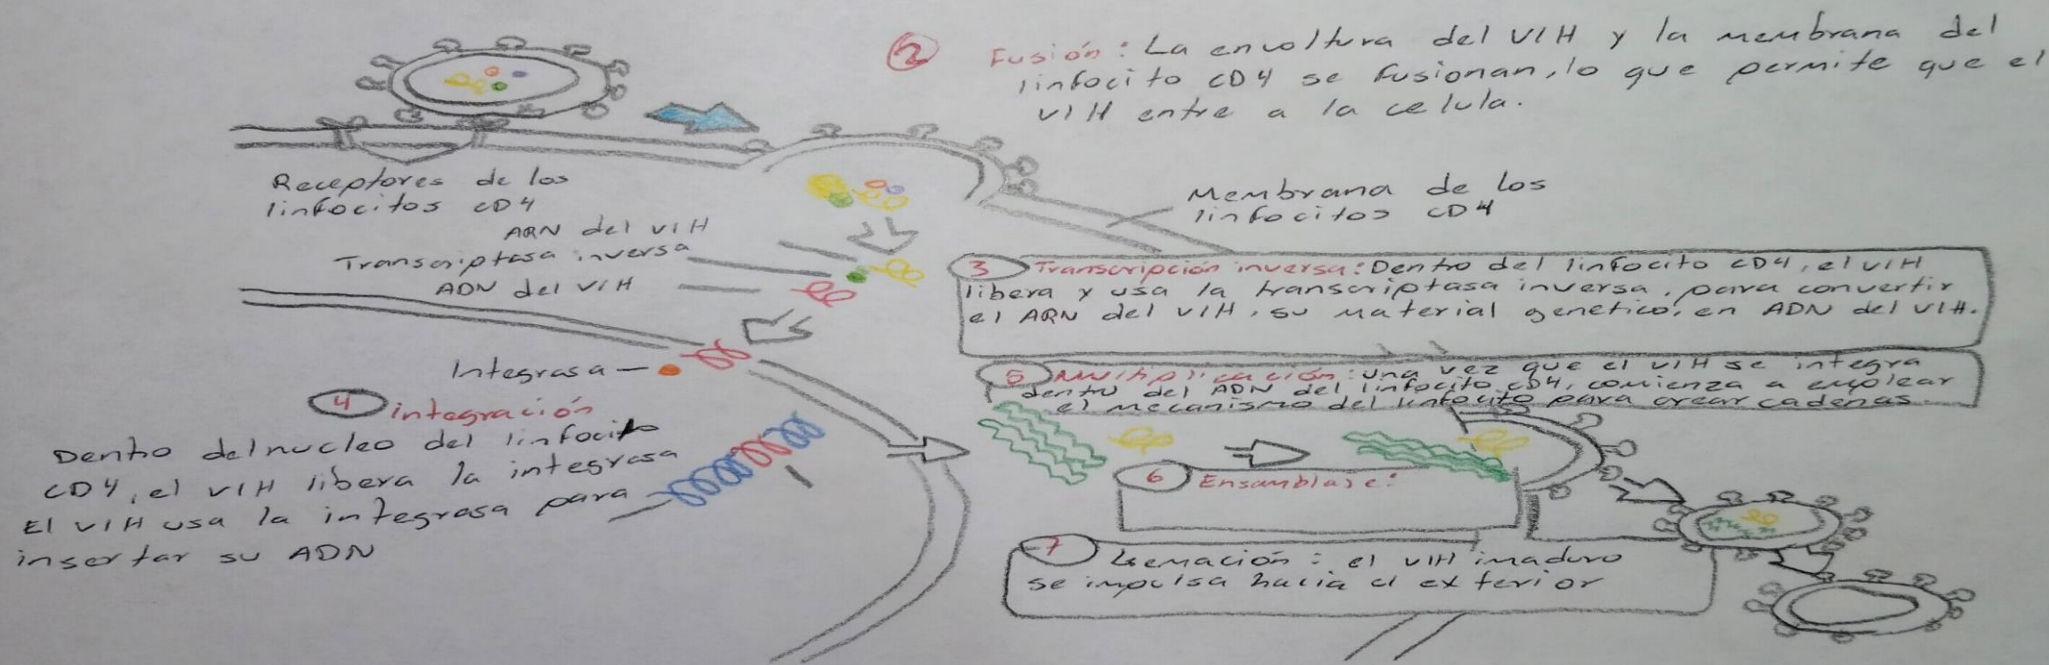 2 Fusión: La envoltura del VIH y la membrana del
linfocito CD4 se fusionan, lo que permite que el
VIH entre a la celula.
Receptores de los
linfocitos CD4
Membrana de los
linfocitos CD4
ARN del VIH
Transcriptasa inversa
ADN del VIH
3 Transcripción inversa: Dentro del linfocito CD4, el VIH
libera y usa la transcriptasa inversa, para convertir
el ARN del VIH, su material genetico, en ADN del VIH.
Integrasa
4 integración
Dentro del nucleo del linfocito
CD4, el VIH libera la integrasa
El VIH usa la integrasa para
insertar su ADN
5 Multiplicación: una vez que el VIH se integra
dentro del ADN del linfocito CD4, comienza a emplear
el mecanismo del linfocito para crear cadenas
6 Ensamblaje:
7 Gemación: el VIH inmaduro
se impulsa hacia el exterior